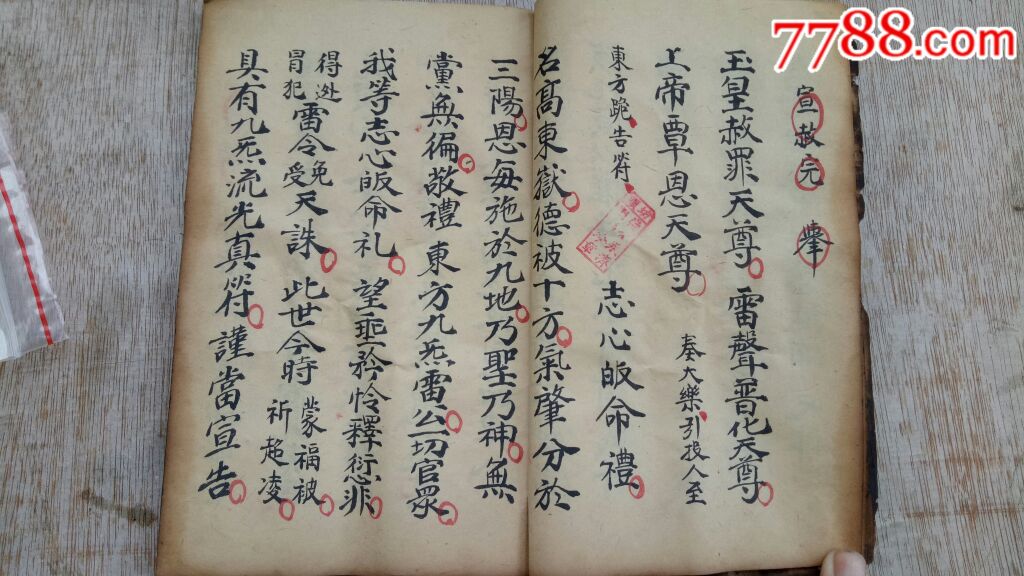 7788.com
宣赦完 舉
玉皇赦罪天尊 雷聲普化天尊
上帝覃恩天尊 奏大樂引投人至
東方跪告符 志心皈命禮
名高東嶽德被十方氣肇分於
三陽恩每施於九地乃聖乃神無
黨無偏敬禮 東方九炁雷公切官眾
我等志心皈命礼 望垂矜怜釋愆非
得逃冒犯雷令免受天誅 此世今時 蒙福被祈超凌
具有九炁流光真符 謹當宣告